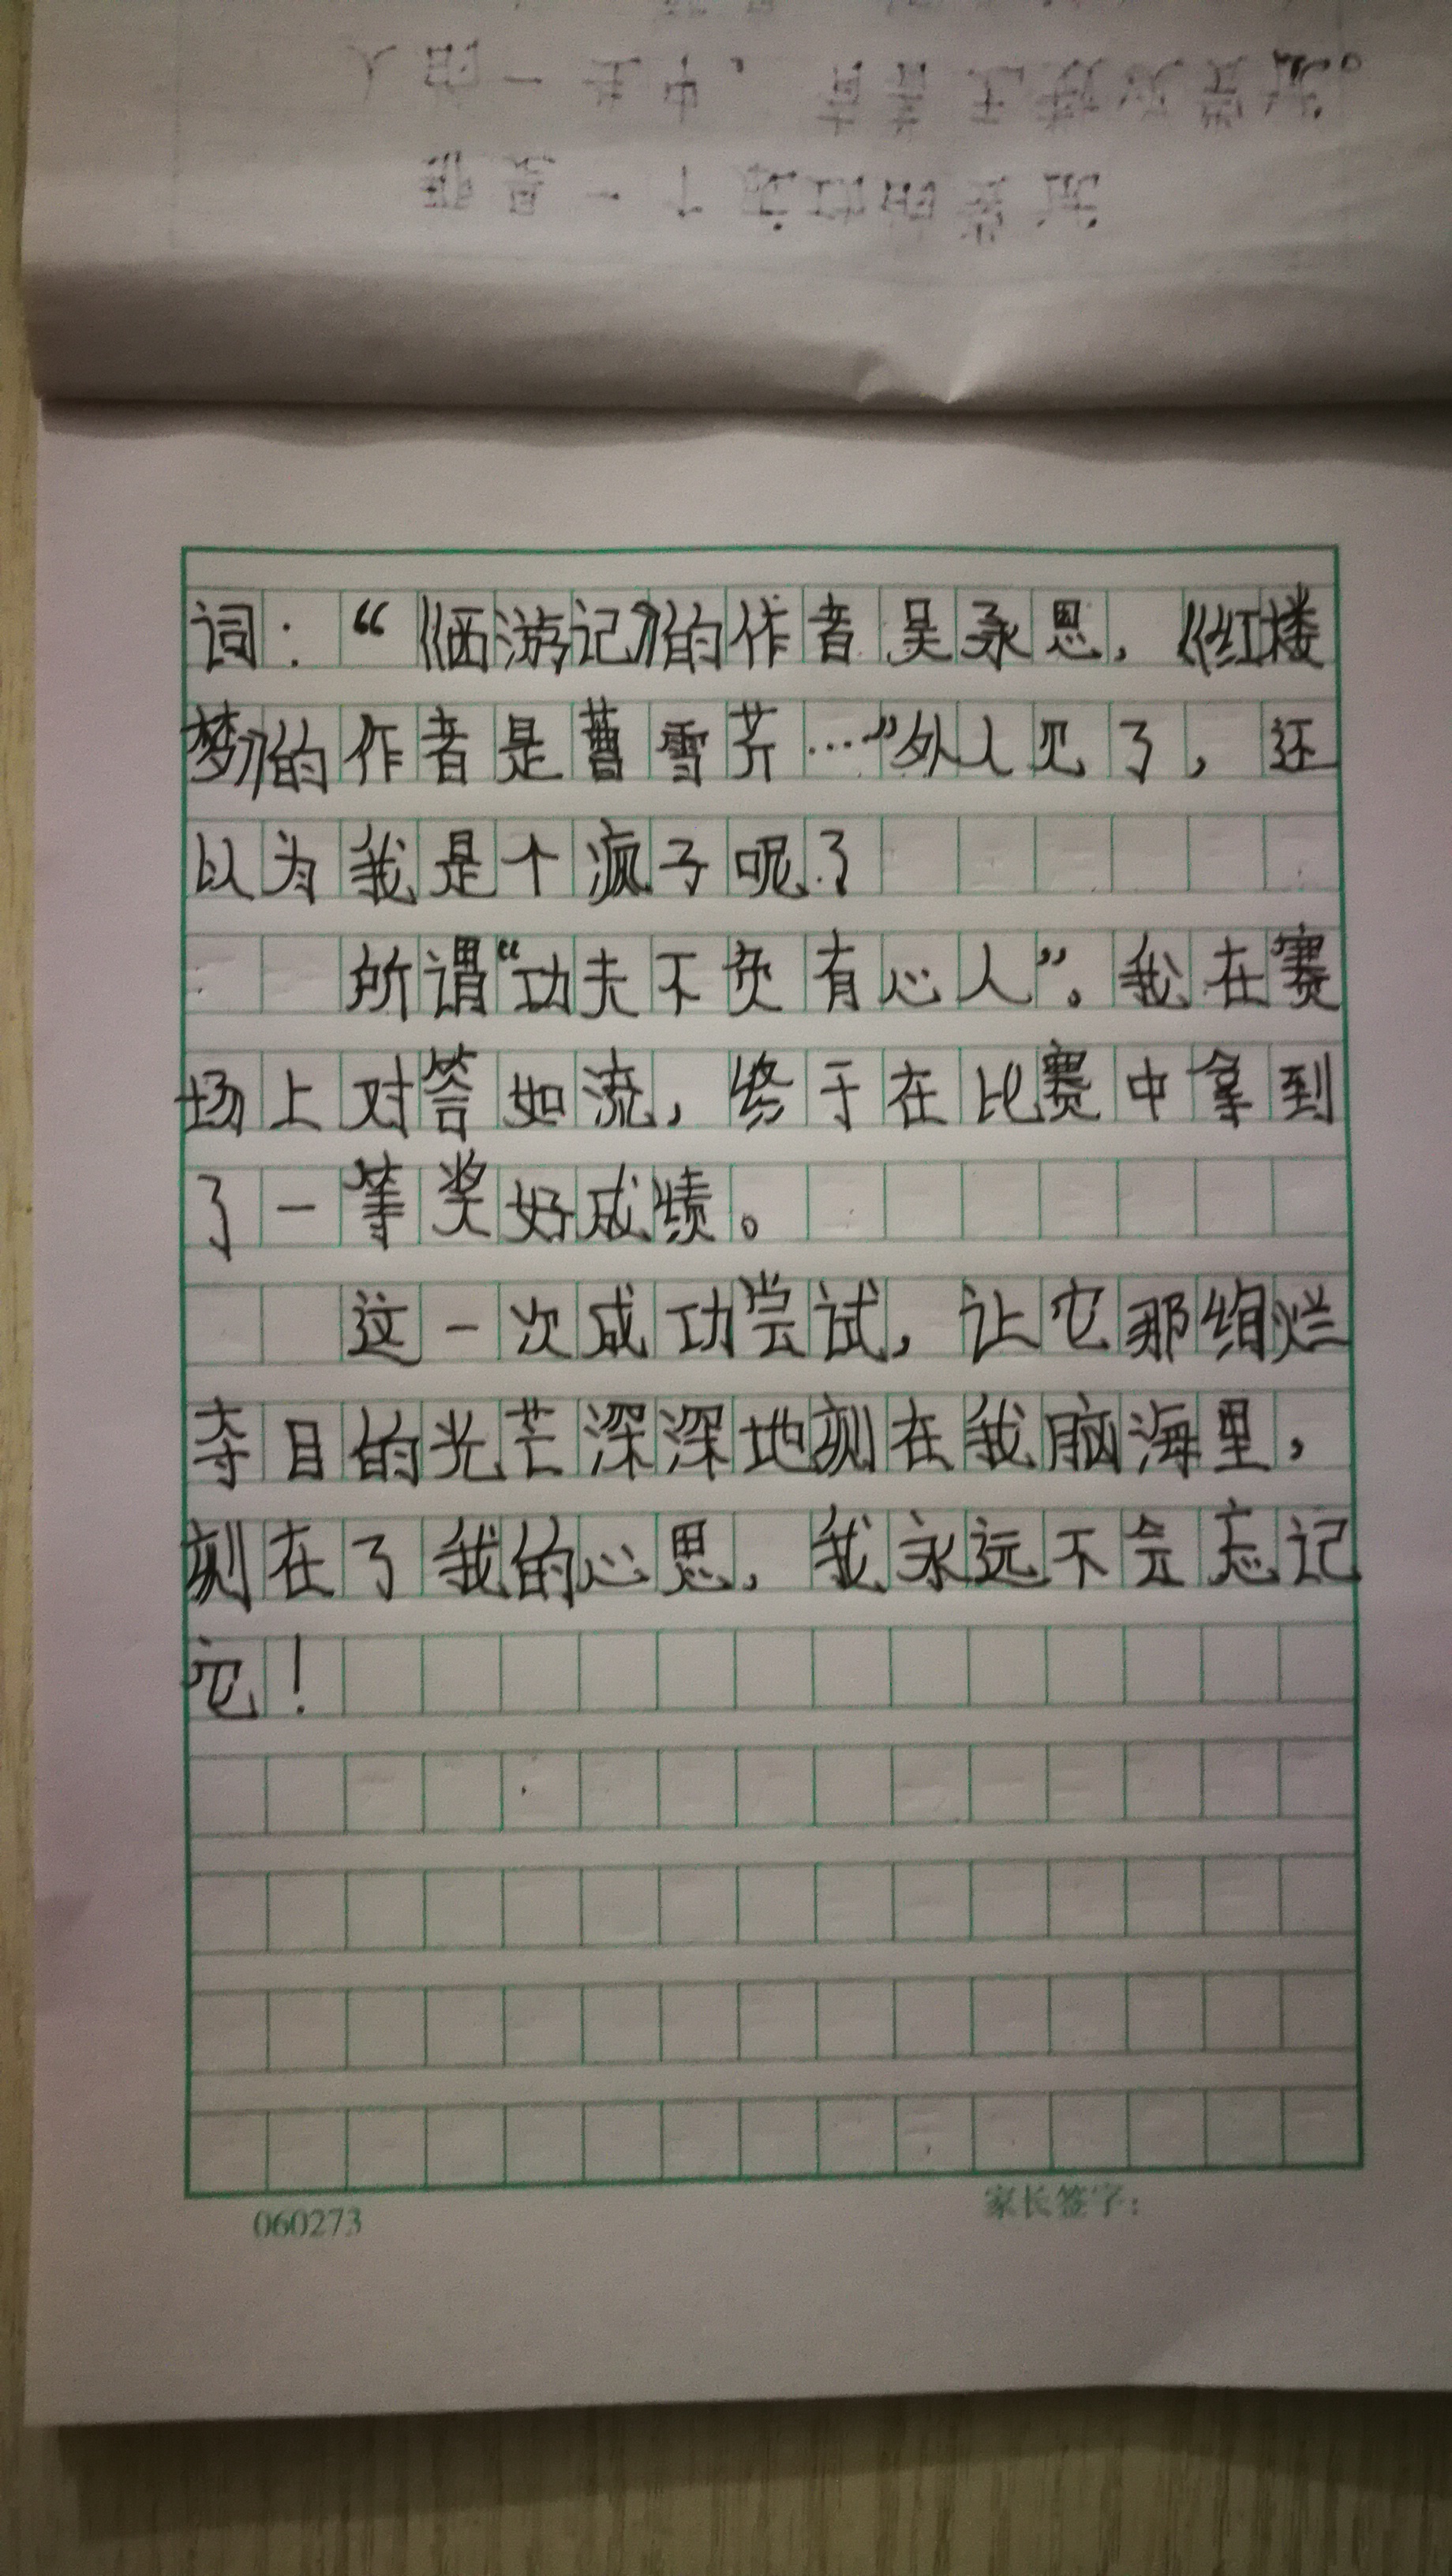 词：“《西游记》的作者吴承恩，《红楼
梦》的作者是曹雪芹…”外人见了，还
以为我是个疯子呢？
所谓“功夫不负有心人”。我在赛
场上对答如流，终于在比赛中拿到
了一等奖好成绩。
这一次成功尝试，让它那绚烂
夺目的光芒深深地刻在我脑海里，
刻在了我的心思，我永远不会忘记
它！
060273
家长签字：